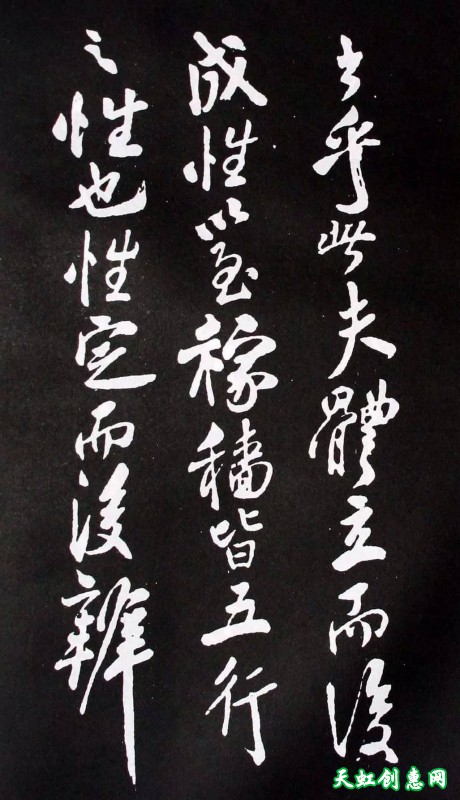 乎此夫體立而後
成性以至稼穡皆五行
之性也性定而後辨
天虹创惠网